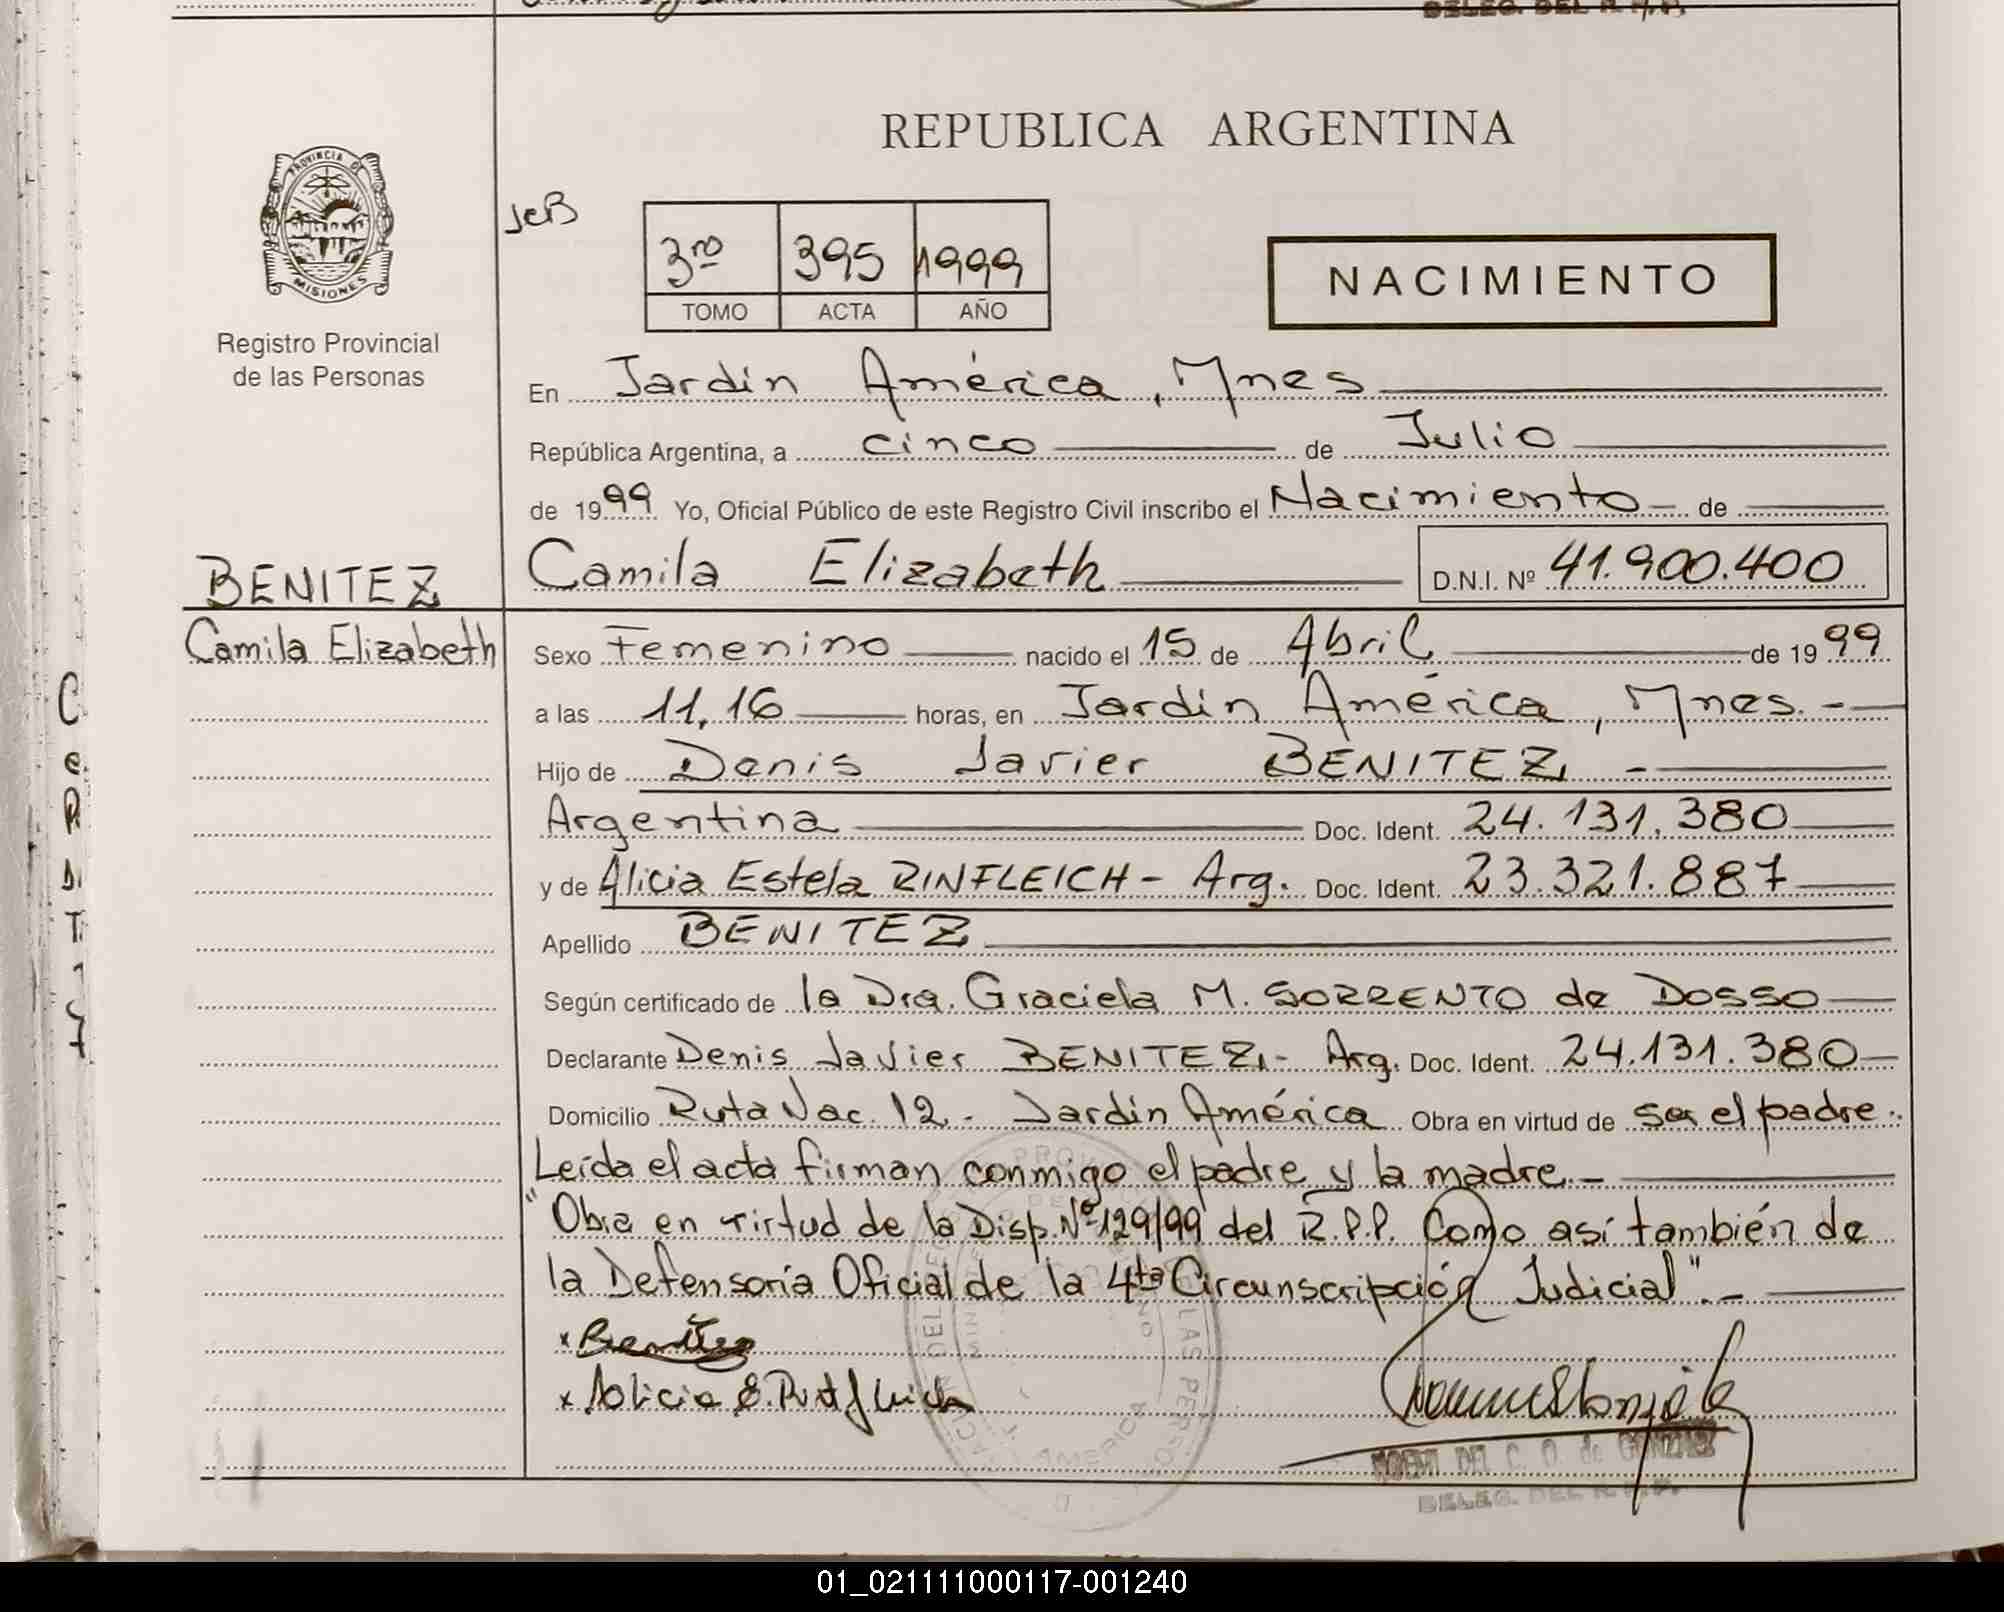 DELEG. DEL R.P.P.
REPUBLICA ARGENTINA
PROVINCIA DE
MISIONES
Registro Provincial
de las Personas
JCB
3ro 395 1999
TOMO ACTA AÑO
NACIMIENTO
En Jardín América, Mnes
República Argentina, a cinco de Julio
de 1999 Yo, Oficial Público de este Registro Civil inscribo el Nacimiento de
BENITEZ Camila Elizabeth D.N.I. Nº 41.900.400
Camila Elizabeth
Sexo Femenino nacido el 15 de Abril de 1999
a las 11,16 horas, en Jardín América, Mnes. -
Hijo de Denis Javier BENITEZ -
Argentina Doc. Ident. 24.131.380
y de Alicia Estela RINFLEICH - Arg. Doc. Ident. 23.321.887
Apellido BENITEZ
Según certificado de la Dra. Graciela M. SORRENTO de DOSSO
Declarante Denis Javier BENITEZ.- Arg. Doc. Ident. 24.131.380
Domicilio Ruta Nac. 12.- Jardín América Obra en virtud de ser el padre.
Leída el acta firman conmigo el padre y la madre.-
"Obra en virtud de la Disp. Nº 129/99 del R.P.P. Como así también de
la Defensoría Oficial de la 4ta Circunscripción Judicial".-
x Benitez
x Alicia E.
NOEMI DEL C. O. de GONZALEZ
DELEG. DEL R.P.P.
01_021111000117-001240